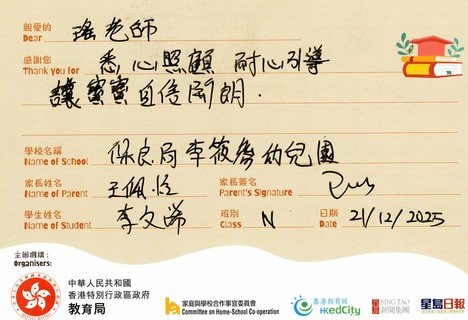 親愛的
Dear 瑤老師
感謝您
Thank you for 悉心照顧 耐心引導
讓蜜蜜自信開朗.
學校名稱
Name of School 保良局李筱喬幼兒園
家長姓名
Name of Parent 王佩
家長簽名
Parent's Signature
學生姓名
Name of Student 李文
班別
Class N
日期
Date 21/12/2025
主辦機構:
Organisers:
中華人民共和國
香港特別行政區政府
教育局
家庭與學校合作事宜委員會
Committee on Home-School Co-operation
香港教育城
HKedCity
星島 SING TAO
新聞集團
星島日報